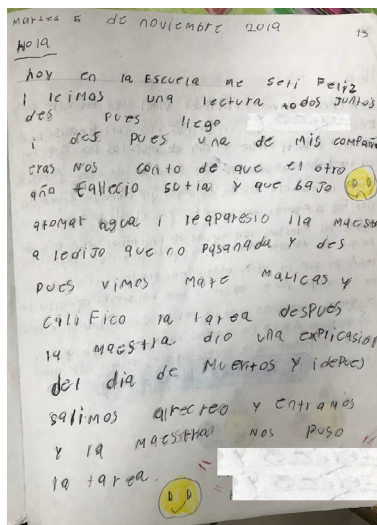 martes 5 de noviembre 2019
13
Hola
hoy en la Escuela me seti Feliz
i leimos una lectura todos juntos
des pues llego
i des pues una de mis compañ
eras nos conto de que el otro
año Fallecio sutia y que bajo
atomar agua i reaparesio lla maest
a ledijo que no pasanada y des
pues vimos mate maticas y
califico la tarea despues
la maestra dio una explicasion
del dia de Muertos y idepues
salimos alrecreo y entramos
y la maestraa nos puso
la tarea.